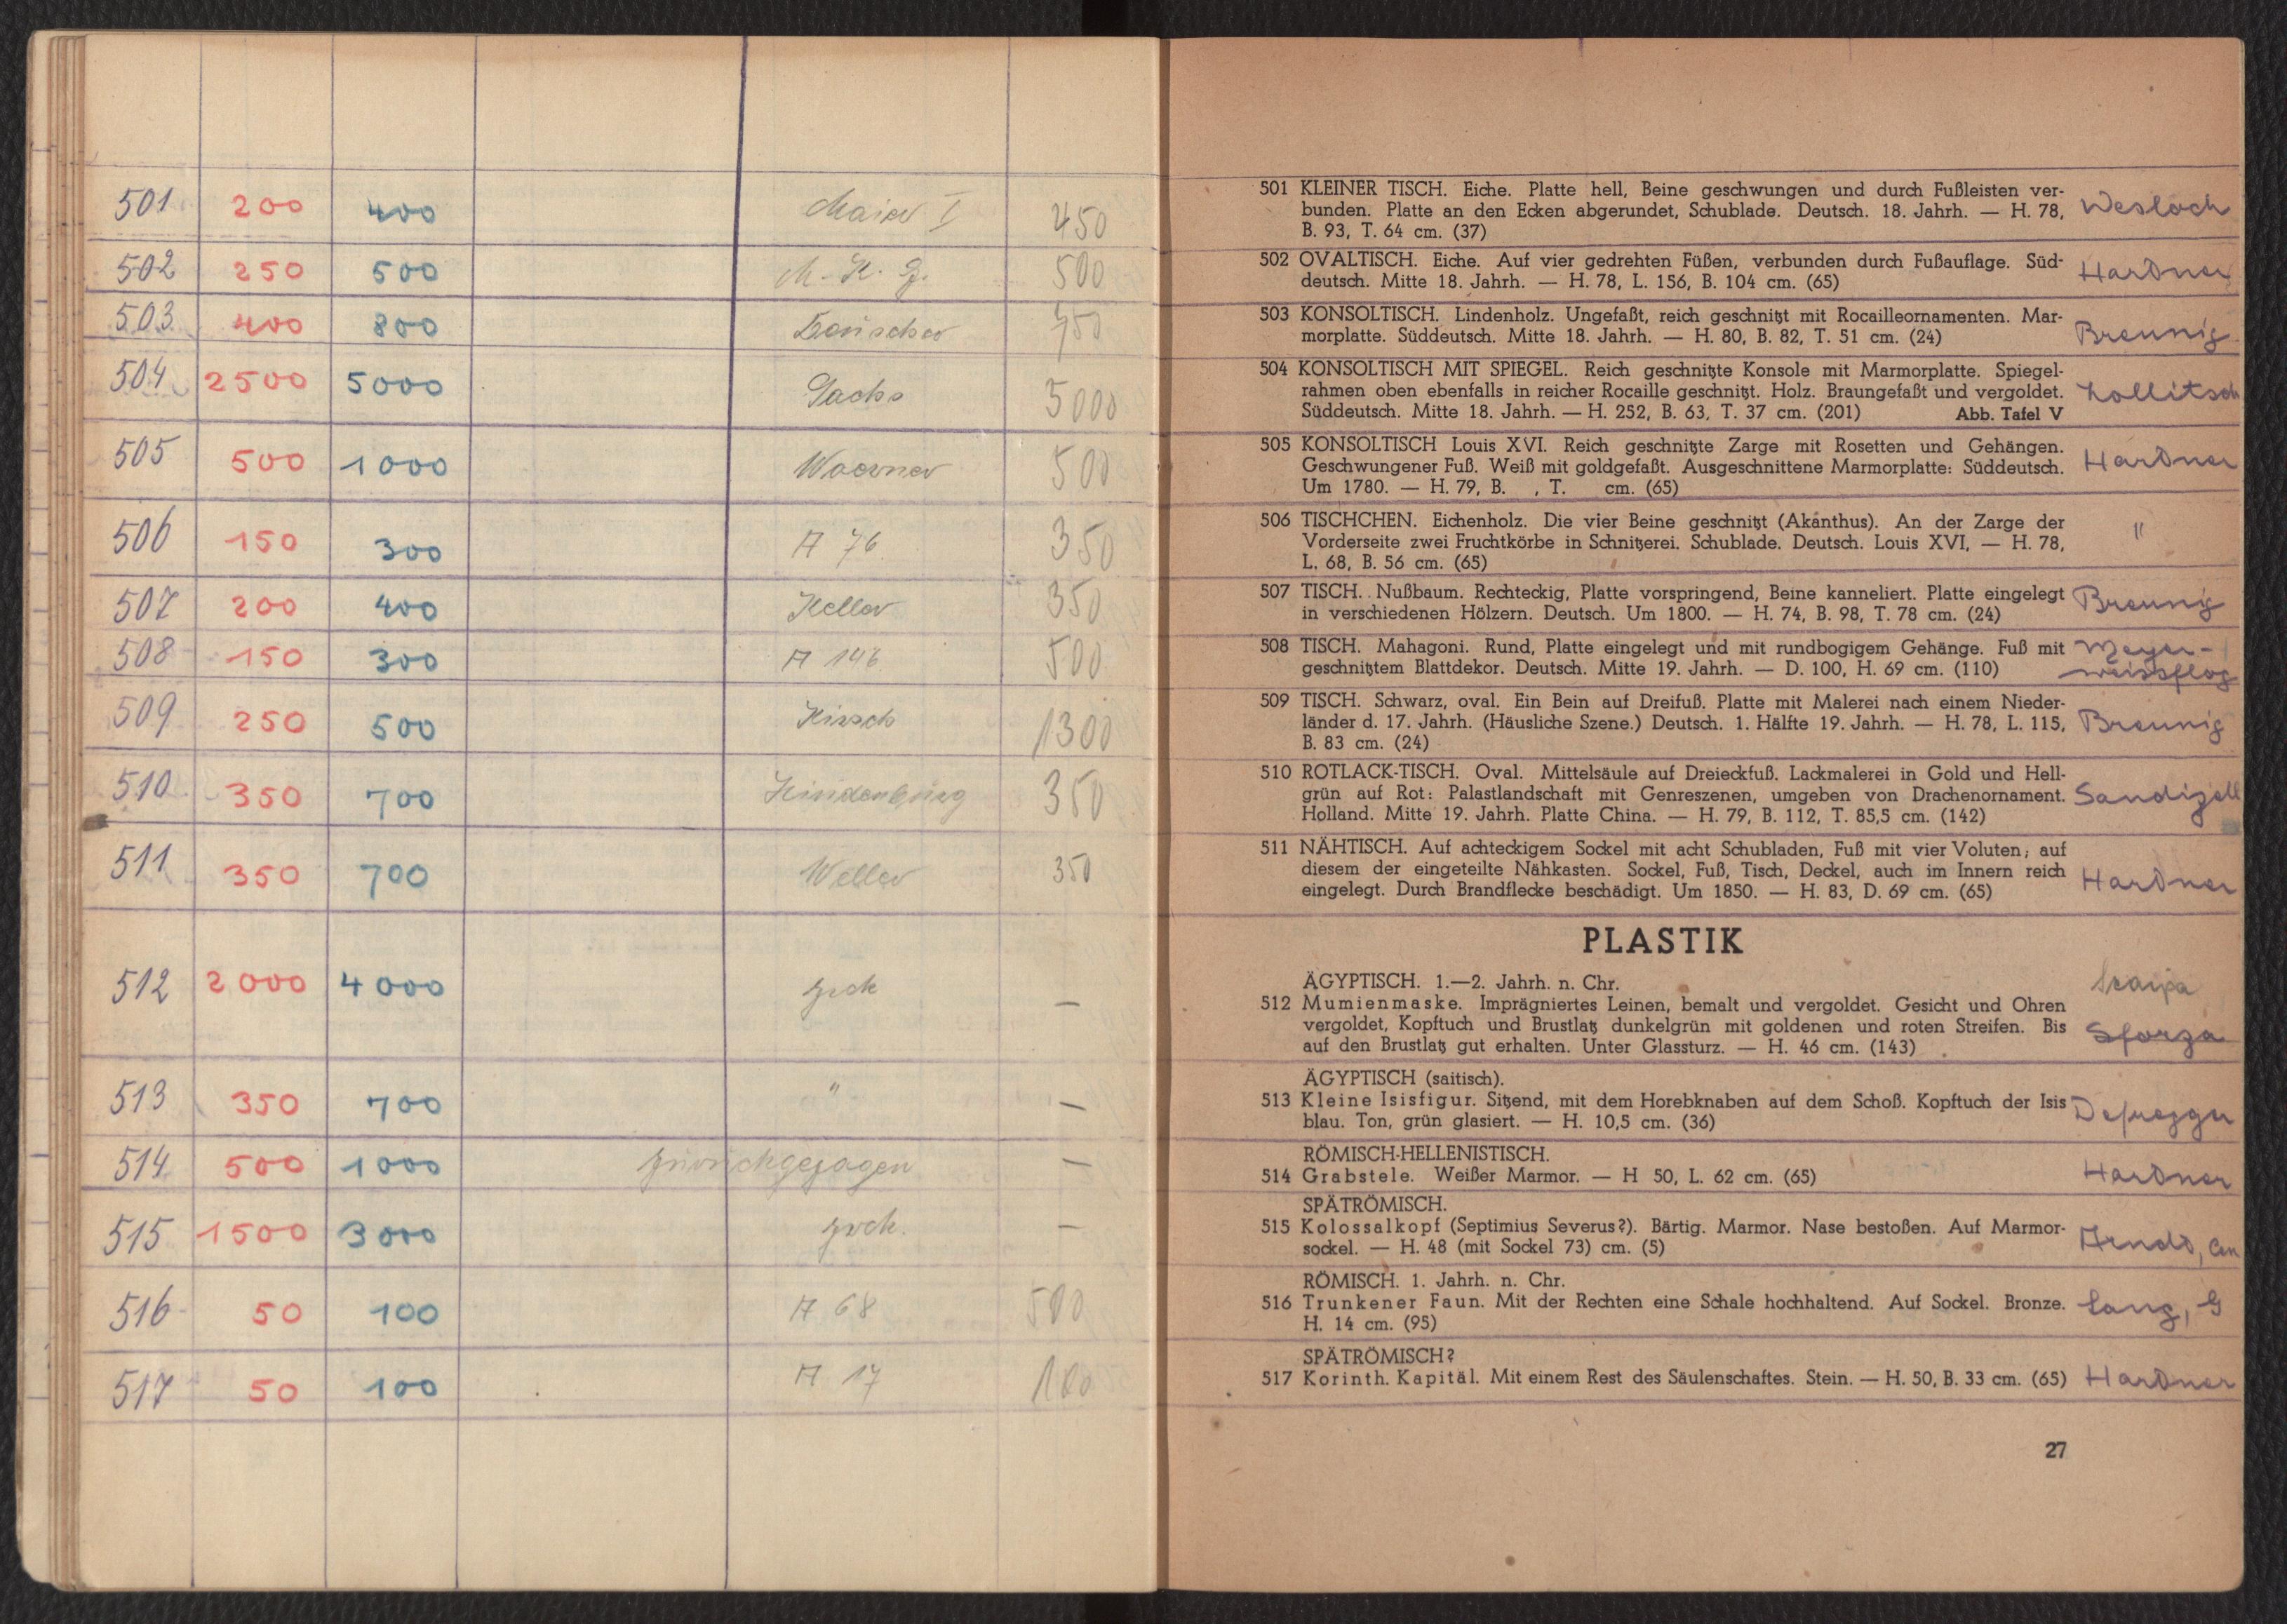 501 200 400 Maier I 450
502 250 500 M. K. G. 500
503 400 800 750
504 2500 5000 Sachs 5000
505 500 1000 Woerner 500
506 150 300 A 76. 350
507 200 400 Keller 350
508 150 300 A 146 500
509 250 500 Hirsch 1300
510 350 700 Hindenburg 350
511 350 700 Weller 350
512 2000 4000 zrck —
513 350 700 " —
514 500 1000 zurückgezogen —
515 1500 3000 zrck. —
516 50 100 A 68 500
517 50 100 A 17 100
501 KLEINER TISCH. Eiche. Platte hell, Beine geschwungen und durch Fußleisten ver-
bunden. Platte an den Ecken abgerundet, Schublade. Deutsch. 18. Jahrh. — H. 78, Wesloch
B. 93, T. 64 cm. (37)
502 OVALTISCH. Eiche. Auf vier gedrehten Füßen, verbunden durch Fußauflage. Süd- Hardner
deutsch. Mitte 18. Jahrh. — H. 78, L. 156, B. 104 cm. (65)
503 KONSOLTISCH. Lindenholz. Ungefaßt, reich geschnitzt mit Rocailleornamenten. Mar-
morplatte. Süddeutsch. Mitte 18. Jahrh. — H. 80, B. 82, T. 51 cm. (24) Breunig
504 KONSOLTISCH MIT SPIEGEL. Reich geschnitzte Konsole mit Marmorplatte. Spiegel-
rahmen oben ebenfalls in reicher Rocaille geschnitzt. Holz. Braungefaßt und vergoldet. Lollitsch
Süddeutsch. Mitte 18. Jahrh. — H. 252, B. 63, T. 37 cm. (201) Abb. Tafel V
505 KONSOLTISCH Louis XVI. Reich geschnitzte Zarge mit Rosetten und Gehängen.
Geschwungener Fuß. Weiß mit goldgefaßt. Ausgeschnittene Marmorplatte: Süddeutsch. Hardner
Um 1780. — H. 79, B. , T. cm. (65)
506 TISCHCHEN. Eichenholz. Die vier Beine geschnitzt (Akanthus). An der Zarge der
Vorderseite zwei Fruchtkörbe in Schnitzerei. Schublade. Deutsch. Louis XVI, — H. 78, "
L. 68, B. 56 cm. (65)
507 TISCH. Nußbaum. Rechteckig, Platte vorspringend, Beine kanneliert. Platte eingelegt Breunig
in verschiedenen Hölzern. Deutsch. Um 1800. — H. 74, B. 98, T. 78 cm. (24)
508 TISCH. Mahagoni. Rund, Platte eingelegt und mit rundbogigem Gehänge. Fuß mit Meyer-
geschnitztem Blattdekor. Deutsch. Mitte 19. Jahrh. — D. 100, H. 69 cm. (110) weissflog
509 TISCH. Schwarz, oval. Ein Bein auf Dreifuß. Platte mit Malerei nach einem Nieder-
länder d. 17. Jahrh. (Häusliche Szene.) Deutsch. 1. Hälfte 19. Jahrh. — H. 78, L. 115, Breunig
B. 83 cm. (24)
510 ROTLACK-TISCH. Oval. Mittelsäule auf Dreieckfuß. Lackmalerei in Gold und Hell-
grün auf Rot: Palastlandschaft mit Genreszenen, umgeben von Drachenornament. Sandizell
Holland. Mitte 19. Jahrh. Platte China. — H. 79, B. 112, T. 85,5 cm. (142)
511 NÄHTISCH. Auf achteckigem Sockel mit acht Schubladen, Fuß mit vier Voluten; auf
diesem der eingeteilte Nähkasten. Sockel, Fuß, Tisch, Deckel, auch im Innern reich Hardner
eingelegt. Durch Brandflecke beschädigt. Um 1850. — H. 83, D. 69 cm. (65)
PLASTIK
ÄGYPTISCH. 1.—2. Jahrh. n. Chr.
512 Mumienmaske. Imprägniertes Leinen, bemalt und vergoldet. Gesicht und Ohren
vergoldet, Kopftuch und Brustlatz dunkelgrün mit goldenen und roten Streifen. Bis Sforza
auf den Brustlatz gut erhalten. Unter Glassturz. — H. 46 cm. (143)
ÄGYPTISCH (saitisch).
513 Kleine Isisfigur. Sitzend, mit dem Horebknaben auf dem Schoß. Kopftuch der Isis Defregger
blau. Ton, grün glasiert. — H. 10,5 cm. (36)
RÖMISCH-HELLENISTISCH.
514 Grabstele. Weißer Marmor. — H 50, L. 62 cm. (65) Hardner
SPÄTRÖMISCH.
515 Kolossalkopf (Septimius Severus?). Bärtig. Marmor. Nase bestoßen. Auf Marmor-
sockel. — H. 48 (mit Sockel 73) cm. (5) Arndt,
RÖMISCH. 1. Jahrh. n. Chr.
516 Trunkener Faun. Mit der Rechten eine Schale hochhaltend. Auf Sockel. Bronze. Lang, G
H. 14 cm. (95)
SPÄTRÖMISCH?
517 Korinth. Kapitäl. Mit einem Rest des Säulenschaftes. Stein. — H. 50, B. 33 cm. (65) Hardner
27